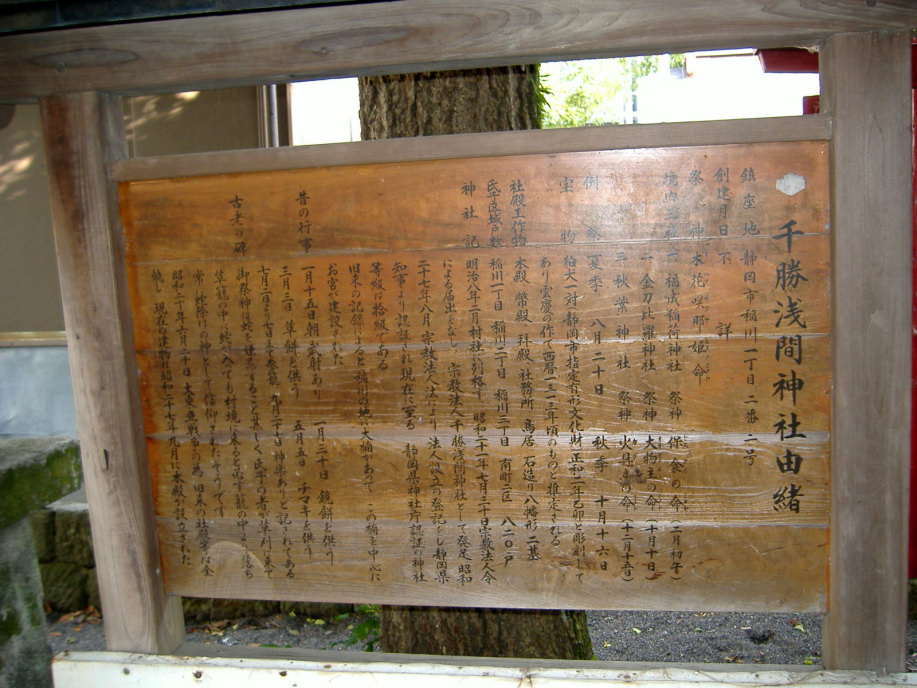 千勝浅間神社由緒
鎮座地 静岡市稲川一丁目二番二号
創建月日 不詳
祭神 木花咲耶姫命
境内 一 福成稲荷神社 祭神 保食の命 (二月初午)
一 金刀比羅神社 祭神 大物主の命 (十月十日)
三 秋葉神社 祭神 火 の命 (十二月十五日)
例祭 夏季 八月二十日 秋季 十月十六日
宝物 狛犬一対 静岡市指定有形文化財 正和二年乙卯と彫刻して
あり 雲慶の作で西暦一二一三年頃のものと推定される
社殿工作物 本殿 幣殿 拝殿 社務所 鳥居 石造り八幡形 二基
氏子区域戸数 稲川一丁目 稲川二丁目 稲川三丁目 南町二区 八二〇戸
神社記 明治八年二月村社列格 昭和二十一年七月三十一日宗教法人令
による届出をなし 宗教法人千勝浅間神社として発足 昭和
二十七年八月 宗教法人法により 法人設立の登記をし 静岡県
知事より認証され現在に至る 静岡県神社庁認課の神社
等級は拾級である
旧来の記録によると稲川の地に大楠があって この楠を中心に
お宮が建設された
昔の行事 一月十五日 朝弓武射あり 一月二十日 鏡餅を供う
三月三日 草餅を供う 五月五日 チマキを供う
七月一日より 九月 古神楽ありと記されてある
古老の碑 御祭神は蛇を嫌はるること甚しく 氏子の者が草刈に来て
草籠の中に蛇を入れても 村境に来ると必ず草籠の中より落ち
常に蛇除けの神として信仰されて来たそうです
昭和二十年六月二十日 大東亜戦争の為 旧来の社殿等は全
焼し 現在の建物は昭和二十七年九月に本殿が設立された